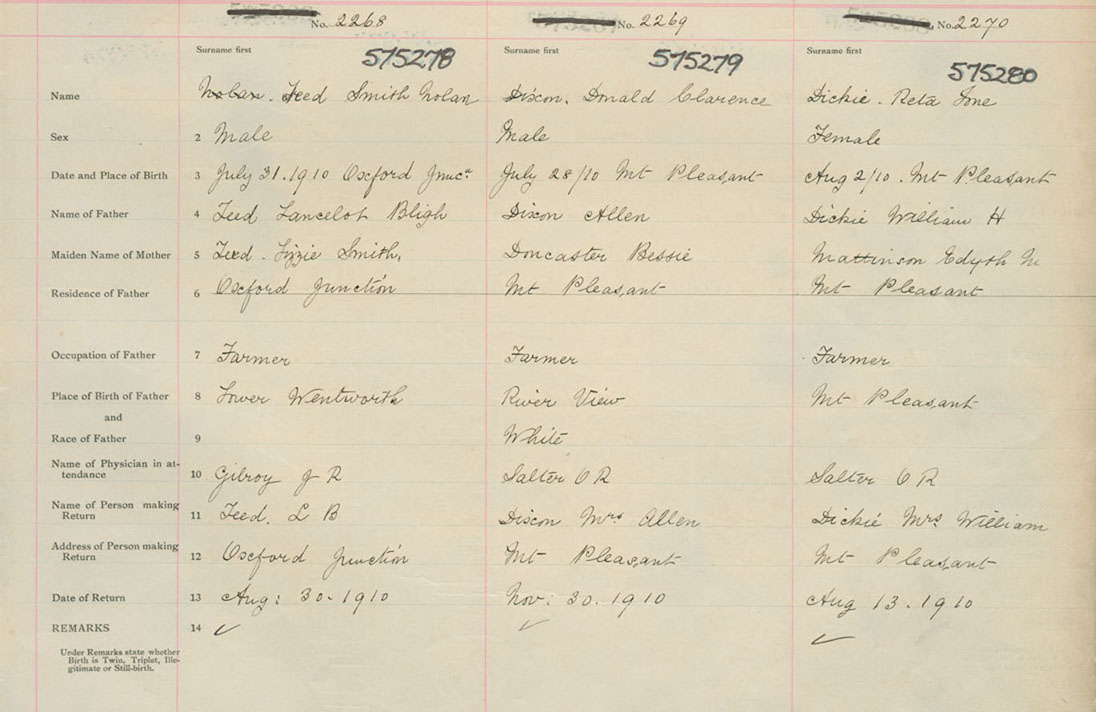 No. 2268 No. 2269 No. 2270
Surname first Surname first Surname first
575278 575279 575280
Name Nolan. Teed Smith Nolan Dixon. Donald Clarence Dickie. Reta Ione
Sex 2 Male Male Female
Date and Place of Birth 3 July 31. 1910 Oxford Junc. July 28/10 Mt Pleasant Aug 2/10. Mt Pleasant
Name of Father 4 Teed Lancelot Bligh Dixon Allen Dickie William H
Maiden Name of Mother 5 Teed. Lizzie Smith, Doncaster Bessie Mattinson Edyth M
Residence of Father 6 Oxford Junction Mt Pleasant Mt Pleasant
Occupation of Father 7 Farmer Farmer Farmer
Place of Birth of Father 8 Lower Wentworth River View Mt Pleasant
and
Race of Father 9 White
Name of Physician in at-
tendance 10 Gilroy J R Salter O R Salter O R
Name of Person making
Return 11 Teed. L B Dixon Mrs Allen Dickie Mrs William
Address of Person making
Return 12 Oxford Junction Mt Pleasant Mt Pleasant
Date of Return 13 Aug: 30-1910 Nov: 30. 1910 Aug 13. 1910
REMARKS 14 ✓ ✓ ✓
Under Remarks state whether
Birth is Twin, Triplet, Ille-
gitimate or Still-birth.